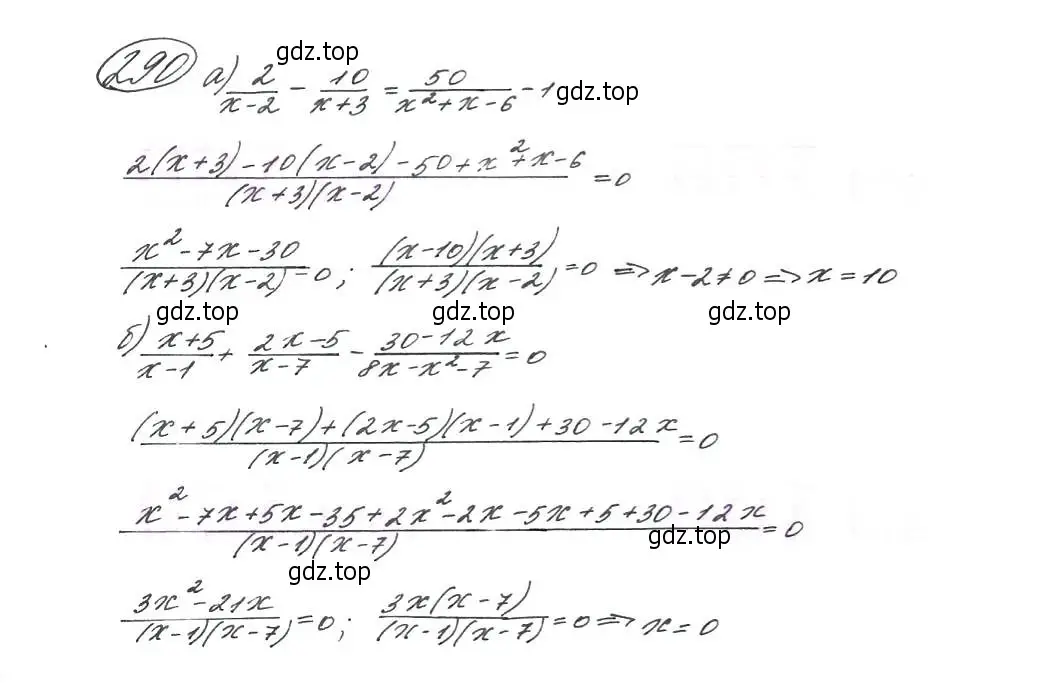 290 а) 2/(x-2) - 10/(x+3) = 50/(x²+x-6) - 1
gdz.top
gdz.top
(2(x+3)-10(x-2)-50+x²+x-6)/((x+3)(x-2)) = 0
(x²-7x-30)/((x+3)(x-2)) = 0; ((x-10)(x+3))/((x+3)(x-2)) = 0 => x-2≠0 => x=10
gdz.top
gdz.top
gdz.top
б) (x+5)/(x-1) + (2x-5)/(x-7) - (30-12x)/(8x-x²-7) = 0
((x+5)(x-7)+(2x-5)(x-1)+30-12x)/((x-1)(x-7)) = 0
(x²-7x+5x-35+2x²-2x-5x+5+30-12x)/((x-1)(x-7)) = 0
gdz.top
gdz.top
(3x²-21x)/((x-1)(x-7)) = 0; (3x(x-7))/((x-1)(x-7)) = 0 => x=0